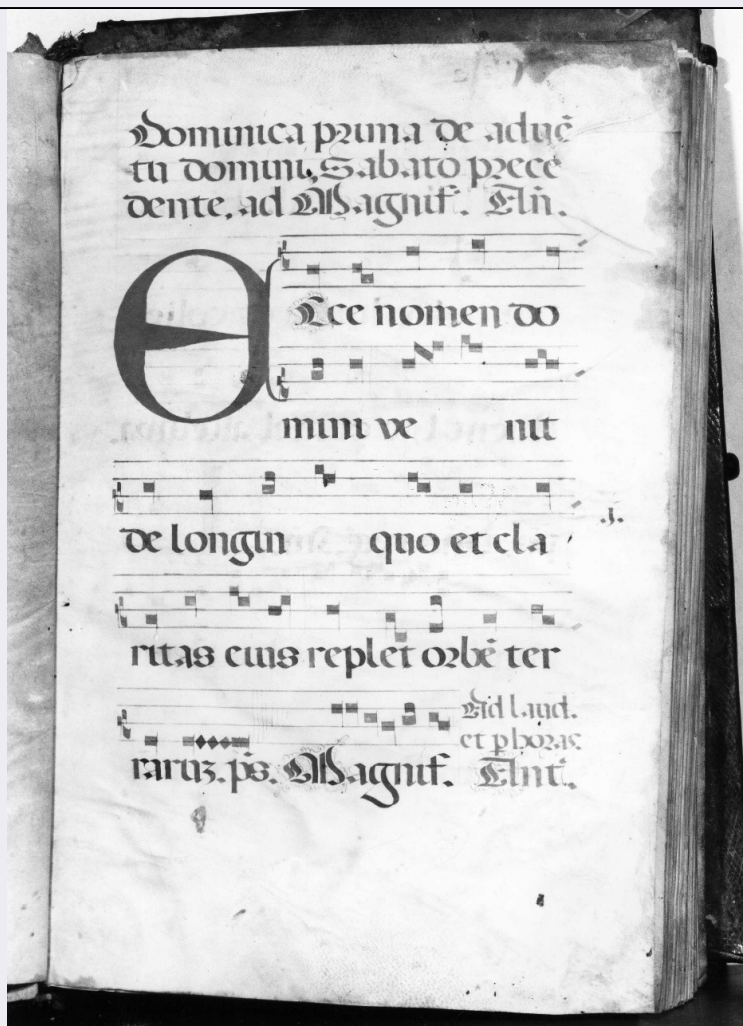 Dominica prima de aduē
tu domini, Sabato prece
dente, ad Magnif. Añ.
ECce nomen do
mini ve nit
de longin quo et cla
.j.
ritas eius replet orbē ter
Ad laud.
et p horas
raruꝫ. p̄s. Magnif. Ant.